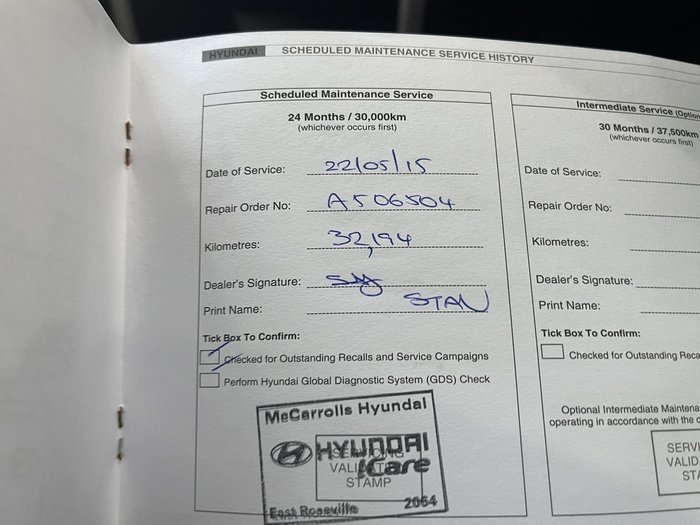 HYUNDAI SCHEDULED MAINTENANCE SERVICE HISTORY
Scheduled Maintenance Service
24 Months / 30,000km
(whichever occurs first)
Date of Service: 22/05/15
Repair Order No: A506504
Kilometres: 32,194
Dealer's Signature:
Print Name: STAN
Tick Box To Confirm:
Checked for Outstanding Recalls and Service Campaigns
Perform Hyundai Global Diagnostic System (GDS) Check
McCarrolls Hyundai
HYUNDAI
iCare
SERVICING
VALIDATION
STAMP
East Roseville 2064
Intermediate Service (Option
30 Months / 37,500km
(whichever occurs first)
Date of Service:
Repair Order No:
Kilometres:
Dealer's Signature:
Print Name:
Tick Box To Confirm:
Checked for Outstanding Reca
Optional Intermediate Maintena
operating in accordance with the
SERVI
VALID
STA